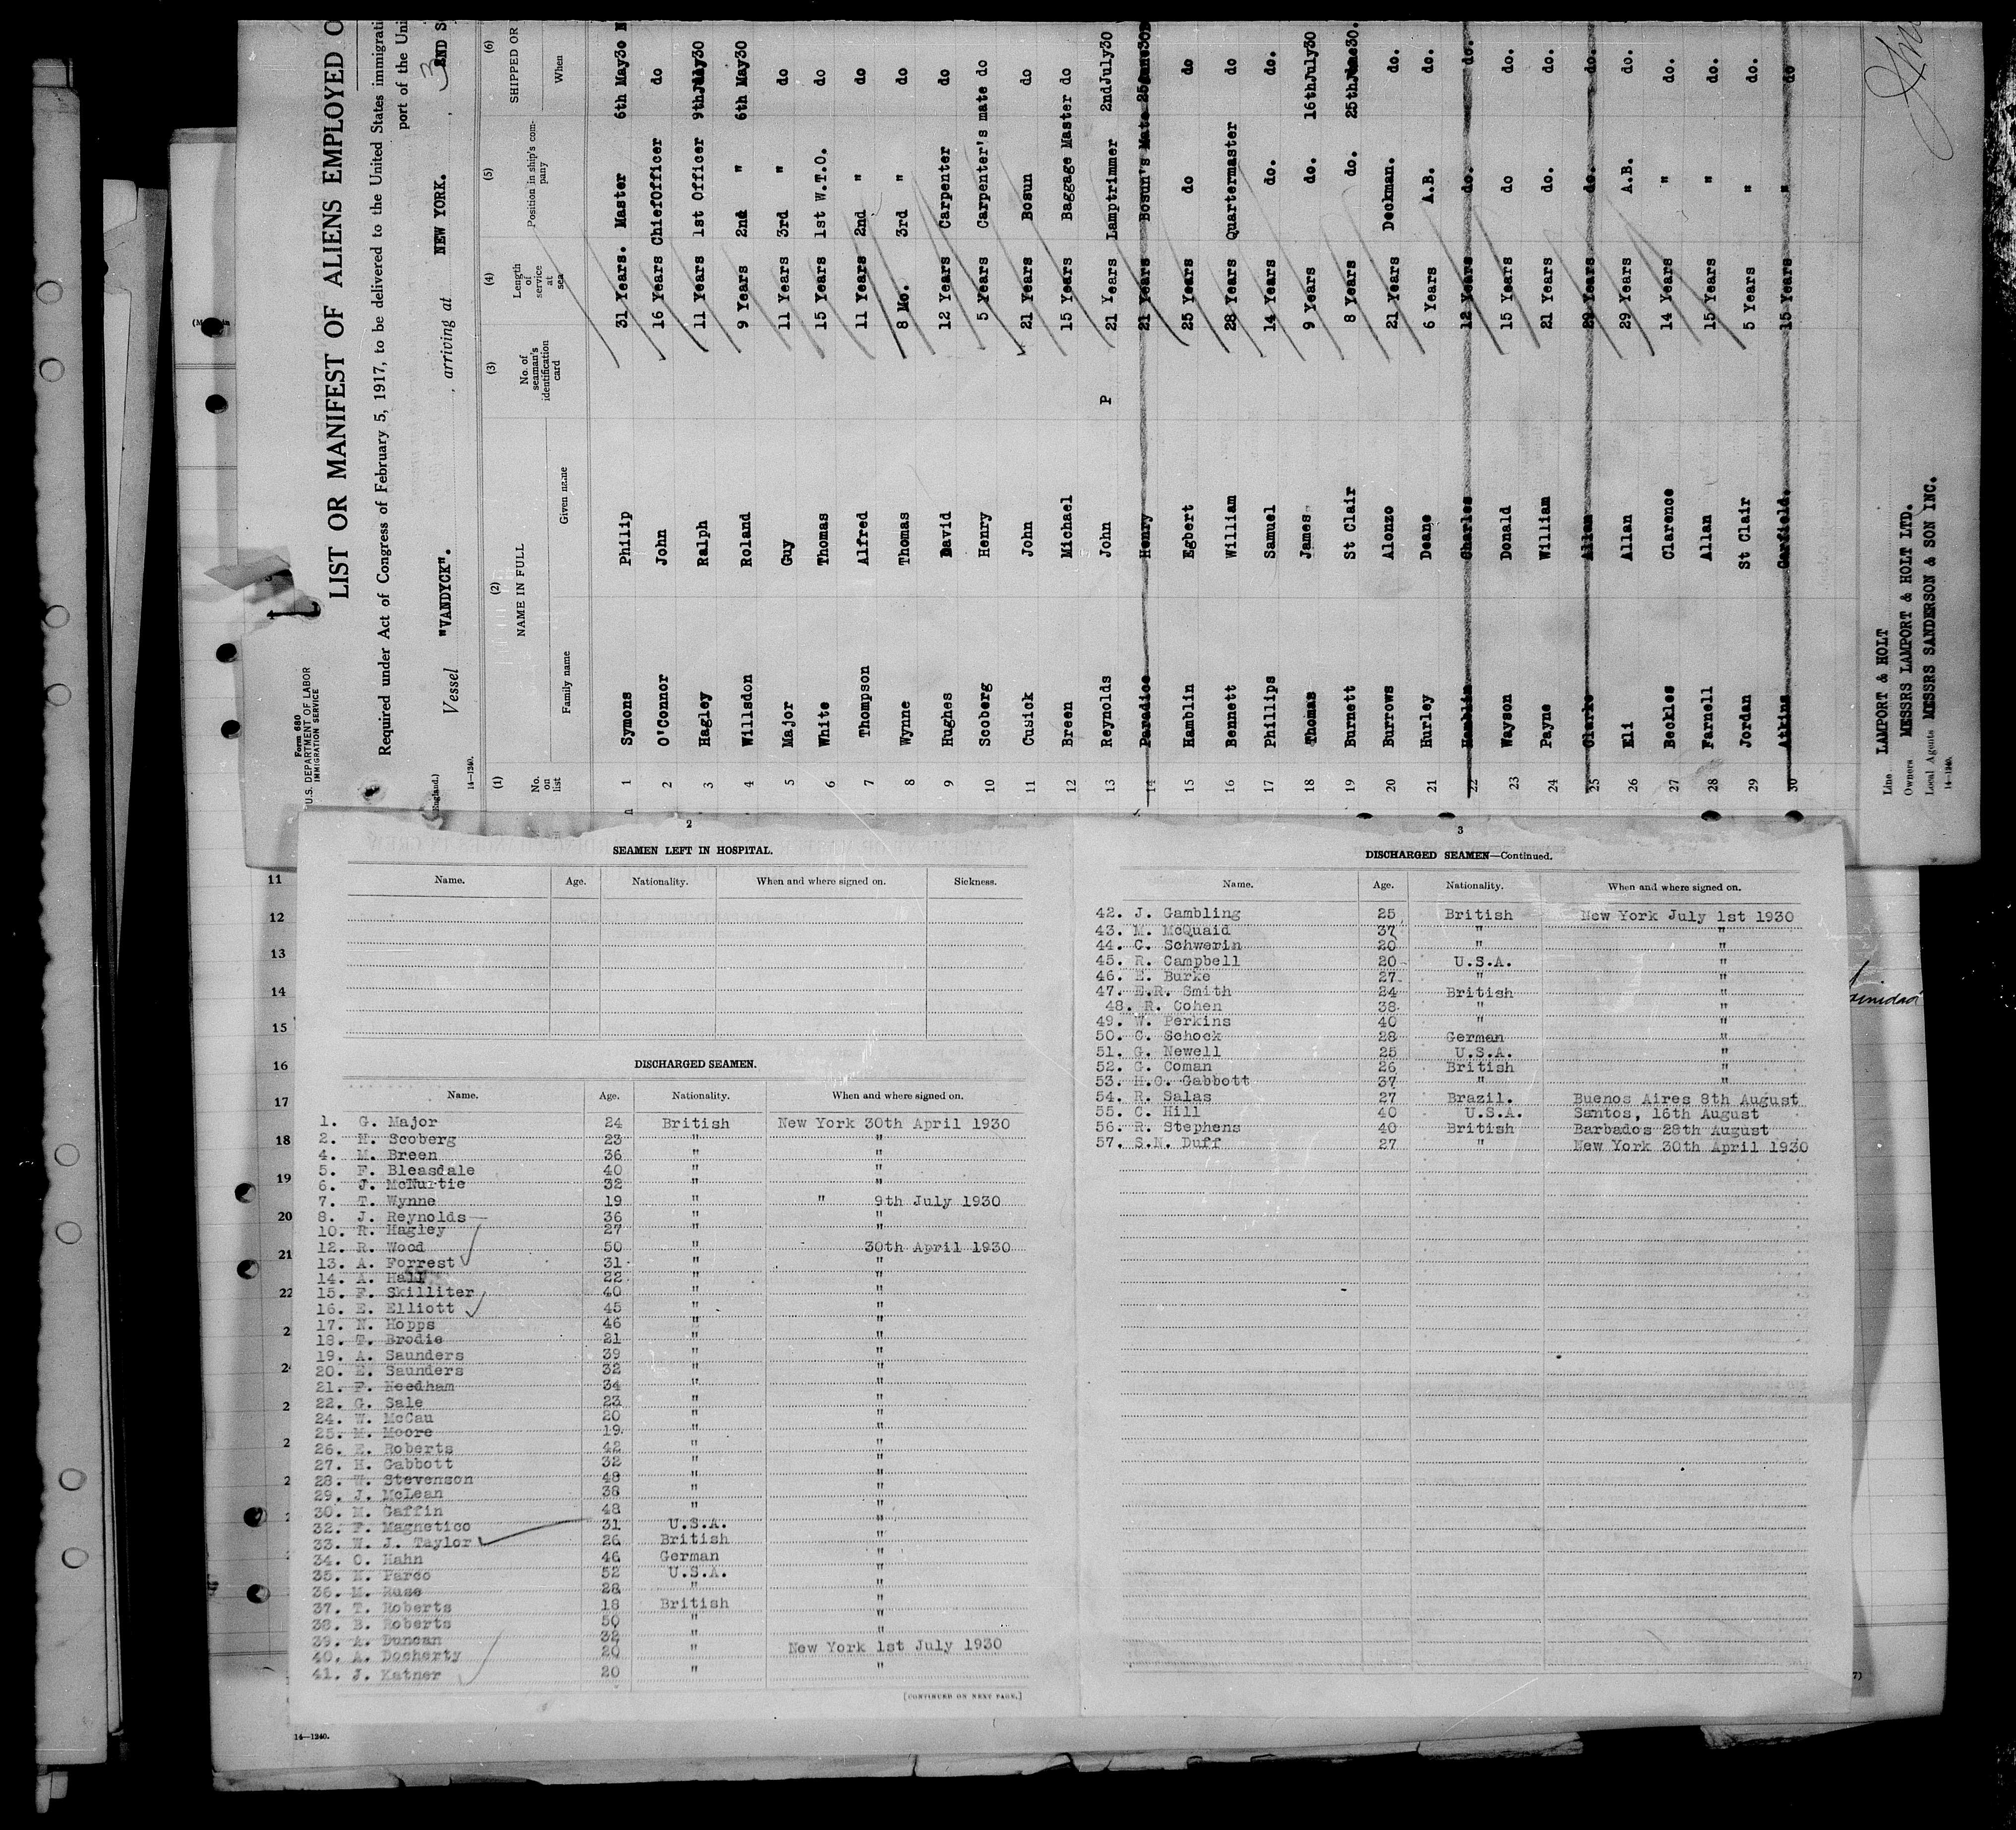 Form 680
U.S. DEPARTMENT OF LABOR
IMMIGRATION SERVICE
LIST OR MANIFEST OF ALIENS EMPLOYED O
Required under Act of Congress of February 5, 1917, to be delivered to the United States immigrati
port of the Uni
Vessel "VANDYCK". , arriving at NEW YORK. , 3 AND S
14—1240.
(1) (2) (3) (4) (5) (6)
No. on list NAME IN FULL No. of seaman's identification card Length of service at sea Position in ship's company SHIPPED OR
Family name Given name When
1 Symons Philip 31 Years. Master 6th May30 N
2 O'Connor John 16 Years ChiefOfficer do
3 Hagley Ralph 11 Years 1st Officer 9thJuly30
4 Willsdon Roland 9 Years 2nd " 6th May30
5 Major Guy 11 Years 3rd " do
6 White Thomas 15 Years 1st W.T.O. do
7 Thompson Alfred 11 Years 2nd " do
8 Wynne Thomas 8 Mo. 3rd " do
9 Hughes David 12 Years Carpenter do
10 Scoberg Henry 5 Years Carpenter's mate do
11 Cusick John 21 Years Bosun do
12 Breen Michael 15 Years Baggage Master do
13 Reynolds John P 21 Years Lamptrimmer 2ndJuly30
14 Paradice Henry 21 Years Bosun's Mate 25June30
15 Hamblin Egbert 25 Years do do
16 Bennett William 28 Years Quartermaster do
17 Phillips Samuel 14 Years do. do.
18 Thomas James 9 Years do. 16thJuly30
19 Burnett St Clair 8 Years do. 25thJune30.
20 Burrows Alonzo 21 Years Deckman. do.
21 Hurley Deane 6 Years A.B. do.
22 Hamblin Charles 12 Years do. do.
23 Wayson Donald 15 Years do do.
24 Payne Willian 21 Years do. do.
25 Clarke Allan 29 Years do. do.
26 Eli Allan 29 Years A.B. do.
27 Beckles Clarence 14 Years " do.
28 Farnell Allan 15 Years " do.
29 Jordan St Clair 5 Years " do.
30 Atkins Garfield. 15 Years " do
Line LAMPORT & HOLT
Owners MESSRS LAMPORT & HOLT LTD.
Local Agents MESSRS SANDERSON & SON INC.
14—1240.
2
SEAMEN LEFT IN HOSPITAL.
Name. Age. Nationality. When and where signed on. Sickness.
DISCHARGED SEAMEN.
Name. Age. Nationality. When and where signed on.
1. G. Major 24 British New York 30th April 1930
2. H. Scoberg 23 " "
4. M. Breen 36 " "
5. F. Bleasdale 40 " "
6. J. McNurtie 32 " "
7. T. Wynne 19 " " 9th July 1930
8. J. Reynolds 36 " "
10. R. Hagley 27 " "
12. R. Wood 50 " 30th April 1930
13. A. Forrest 31 " "
14. A. Hall 22 " "
15. F. Skilliter 40 " "
16. E. Elliott 45 " "
17. N. Hopps 46 " "
18. T. Brodie 21 " "
19. A. Saunders 39 " "
20. E. Saunders 32 " "
21. F. Needham 34 " "
22. G. Sale 23 " "
24. W. McCau 20 " "
25. M. Moore 19 " "
26. E. Roberts 42 " "
27. H. Gabbott 32 " "
28. W. Stevenson 48 " "
29. J. McLean 38 " "
30. M. Gaffin 48 " "
32. F. Magnetico 31 U.S.A. "
33. W. J. Taylor 26 British "
34. O. Hahn 46 German "
35. K. Parco 52 U.S.A. "
36. M. Ruse 28 " "
37. T. Roberts 18 British "
38. B. Roberts 50 " "
39. A. Duncan 32 " "
40. A. Docherty 20 " New York 1st July 1930
41. J. Katner 20 " "
[CONTINUED ON NEXT PAGE.]
3
DISCHARGED SEAMEN—Continued.
Name. Age. Nationality. When and where signed on.
42. J. Gambling 25 British New York July 1st 1930
43. M. McQuaid 37 " "
44. C. Schwerin 20 " "
45. R. Campbell 20 U.S.A. "
46. E. Burke 27 " "
47. E.R. Smith 24 British "
48. R. Cohen 38 " "
49. W. Perkins 40 " "
50. C. Schock 28 German "
51. G. Newell 25 U.S.A. "
52. G. Coman 26 British "
53. H.C. Gabbott 37 " "
54. R. Salas 27 Brazil. Buenos Aires 8th August
55. C. Hill 40 U.S.A. Santos, 16th August
56. R. Stephens 40 British Barbados 28th August
57. S.N. Duff 27 " New York 30th April 1930
11
12
13
14
15
16
17
18
19
20
21
22
14—1240.